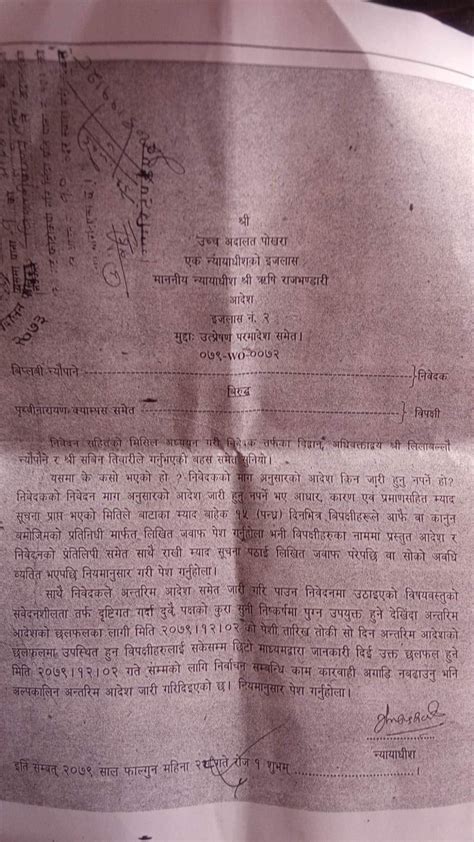 श्री
उच्च अदालत पोखरा
एक न्यायाधीशको इजलास
माननीय न्यायाधीश श्री ऋषि राजभण्डारी
आदेश
इजलास नं. २
मुद्दाः उत्प्रेषण परमादेश समेत।
०७९-WO-००७२
बिप्लबी न्यौपाने ---------- निवेदक
बिरुद्ध
पृथ्वीनारायण क्याम्पस समेत ---------- बिपक्षी
निवेदन सहितको मिसिल अध्ययन गरी निवेदक तर्फका विद्वान अधिवक्ताद्वय श्री लिलाबल्लभ
न्यौपाने र श्री सबिन तिवारीले गर्नुभएको बहस समेत सुनियो।
यसमा के कसो भएको हो ? निवेदकको माग अनुसारको आदेश किन जारी हुनु नपर्ने हो?
निवेदकको निवेदन माग अनुसारको आदेश जारी हुनु नपर्ने भए आधार, कारण एवं प्रमाणसहित म्याद
सूचना प्राप्त भएको मितिले बाटाका म्याद बाहेक १५ (पन्ध्र) दिनभित्र विपक्षीहरूले आफै वा कानुन
बमोजिमको प्रतिनिधी मार्फत लिखित जवाफ पेश गर्नुहोला भनी विपक्षीहरुका नाममा प्रस्तुत आदेश र
निवेदनको प्रतिलिपी समेत साथै राखी म्याद सूचना पठाई लिखित जवाफ परेपछि वा सोको अवधि
व्यतित भएपछि नियमानुसार गरी पेश गर्नुहोला।
साथै निवेदकले अन्तरिम आदेश समेत जारी गरि पाउन निवेदनमा उठाइएको विषयवस्तुको
संवेदनशीलता तर्फ दृष्टिगत गर्दा दुवै पक्षको कुरा सुनी निष्कर्षमा पुग्न उपयुक्त हुने देखिंदा अन्तरिम
आदेशको छलफलका लागी मिति २०७९।१२।०२ को पेशी तारिख तोकी सो दिन अन्तरिम आदेशको
छलफलमा उपस्थित हुन विपक्षीहरुलाई सकेसम्म छिटो माध्यमद्वारा जानकारी दिई उक्त छलफल हुने
मिति २०७९।१२।०२ गते सम्मको लागि निर्वाचन सम्बन्धि काम कारवाही अगाडि नबढाउनु भनि
अल्पकालिन अन्तरिम आदेश जारी गरिदिइएको छ। नियमानुसार पेश गर्नुहोला।
न्यायाधीश
इति सम्बत् २०७९ साल फाल्गुन महिना गते रोज १ शुभम्